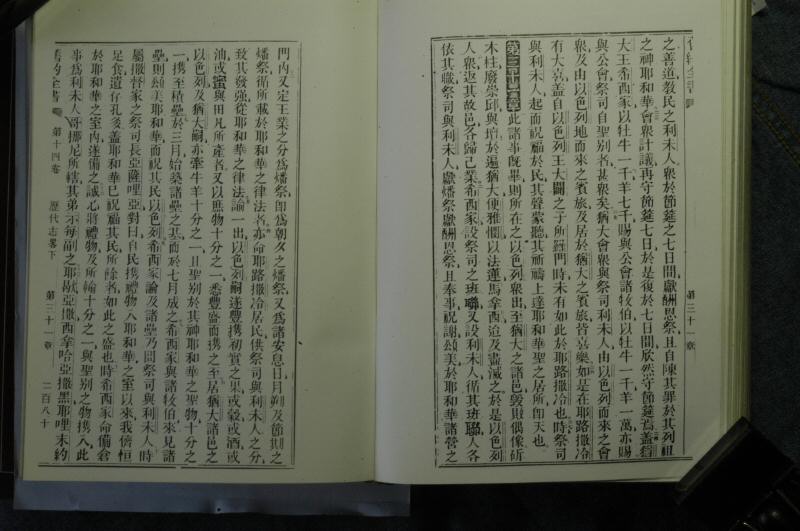 舊約全書
之善道教民之利未人衆於節筵之七日間獻酬恩祭且自陳其罪於其列祖
之神耶和華會衆計議再守節筵七日於是復於七日間欣然守節筵焉蓋猶
大王希西家以牡牛一千羊七千賜與公會諸牧伯以牡牛一千羊一萬亦賜
與公會祭司自聖別者甚衆矣猶大會衆與祭司利未人由以色列而來之會
衆及由以色列地而來之賓旅及居於猶大之賓旅皆喜樂如是在耶路撒冷
有大喜蓋自以色列王大闢之子所羅門時未有如此於耶路撒冷也時祭司
與利未人起而祝福於民其聲蒙聽其祈禱上達耶和華聖之居所卽天也
第三十一章 此諸事既畢則所在之以色列衆出至猶大之諸邑毁厥偶像斫
木柱廢崇邱與壇於遍猶大便雅憫以法蓮馬拿西迨及盡滅之於是以色列
人衆返其故邑各歸己業希西家設祭司之班聯又設利未人循其班聯人各
依其職祭司與利未人獻燔祭獻酬恩祭且奉事祝謝頌美於耶和華諸營之
第三十一章
門內又定王業之分爲燔祭卽爲朝夕之燔祭又爲諸安息日月朔及節期之
燔祭循所載於耶和華之律法者亦命耶路撒冷居民供祭司與利未人之分
致其發強從耶和華之律法諭一出以色列嗣遂豐携初實之果或穀或酒或
油或蜜與田凡所產者又以庶物十分之一悉豐盛而携之至居猶大諸邑之
以色列及猶大嗣亦牽牛羊十分之一且聖別於其神耶和華之聖物十分之
一携至積壘於三月始築諸壘之基而於七月成之希西家與諸牧伯來見諸
壘則頌美耶和華而祝其民以色列希西家諭及諸壘乃問祭司與利未人時
屬撒督家之祭司長亞薩哩亞對曰自民携禮物入耶和華之室以來我儕恒
足食遺存孔多蓋耶和華已祝福其民所餘者如此之盛也時希西家命備倉
於耶和華之室內遂備之誠心將禮物及所輸十分之一與聖別之物携入此
事爲利未人哥挪尼所轄其弟示每副之耶歇亞撒西拿哈亞撒黑耶哩末約
舊約全書 第十四卷 歷代志畧下 第三十一章 二百八十